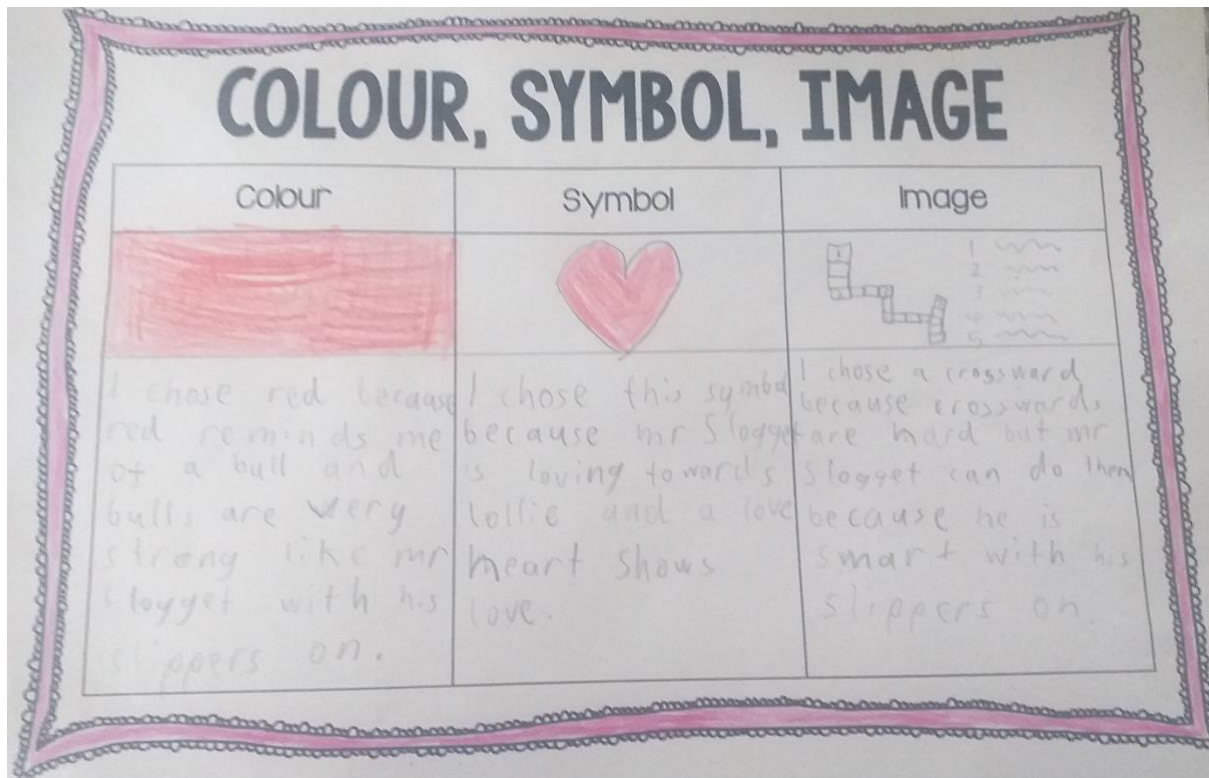 COLOUR, SYMBOL, IMAGE
Colour
Symbol
Image
1
2
3
4
5
I chose red because
red reminds me
of a bull and
bulls are very
strong like mr
slogget with his
slippers on.
I chose this symbol
because mr Slogget
is loving towards
lollie and a love
heart shows
love.
I chose a crossward
because crosswards
are hard but mr
Slogget can do them
because he is
smart with his
slippers on